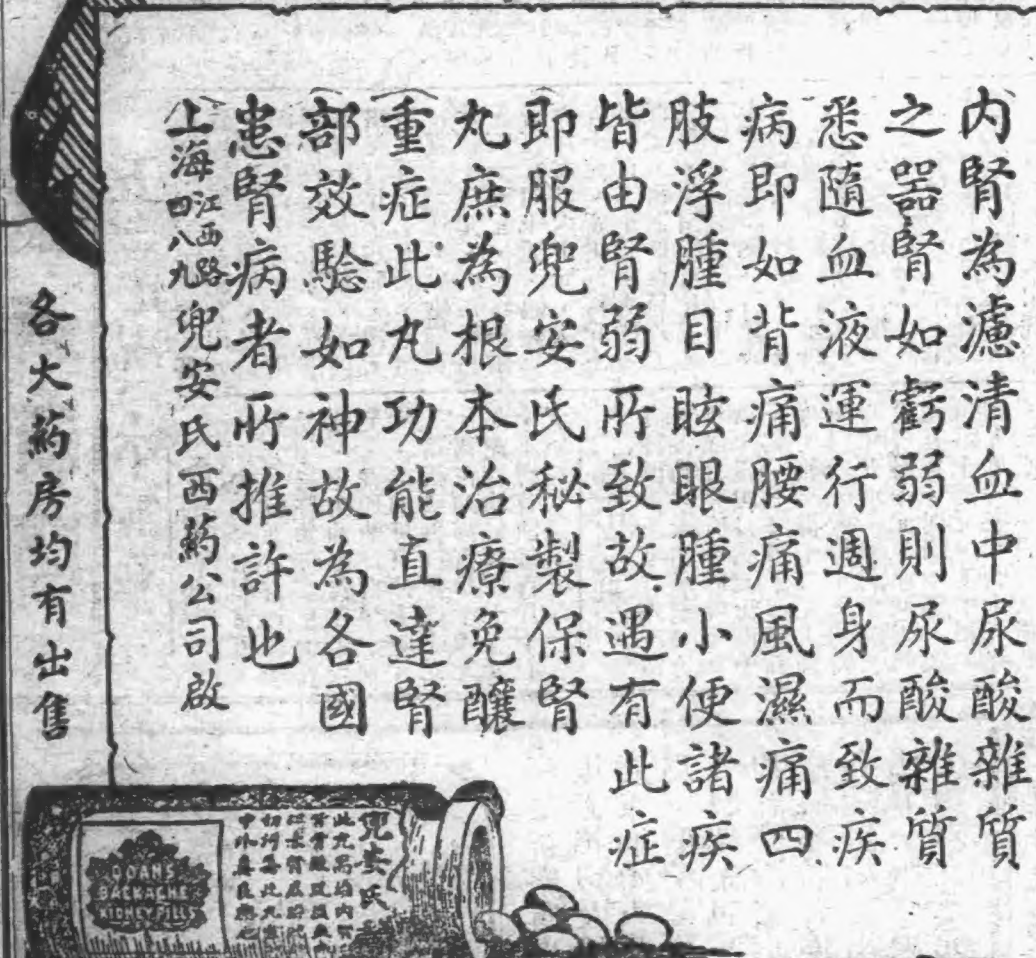 内腎為濾清血中尿酸雜質
之器腎如虧弱則尿酸雜質
悉隨血液運行週身而致疾
病即如背痛腰痛風濕痛四
肢浮腫目眩眼腫小便諸疾
皆由腎弱所致故遇有此症
即服兜安氏秘製保腎
丸庶為根本治療免釀
重症此丸功能直達腎
部效驗如神故為各國
患腎病者所推許也
上海江西路四八九兜安氏西葯公司啟
各大葯房均有出售
兜安氏
DOAN'S
BACKACHE
KIDNEY PILLS